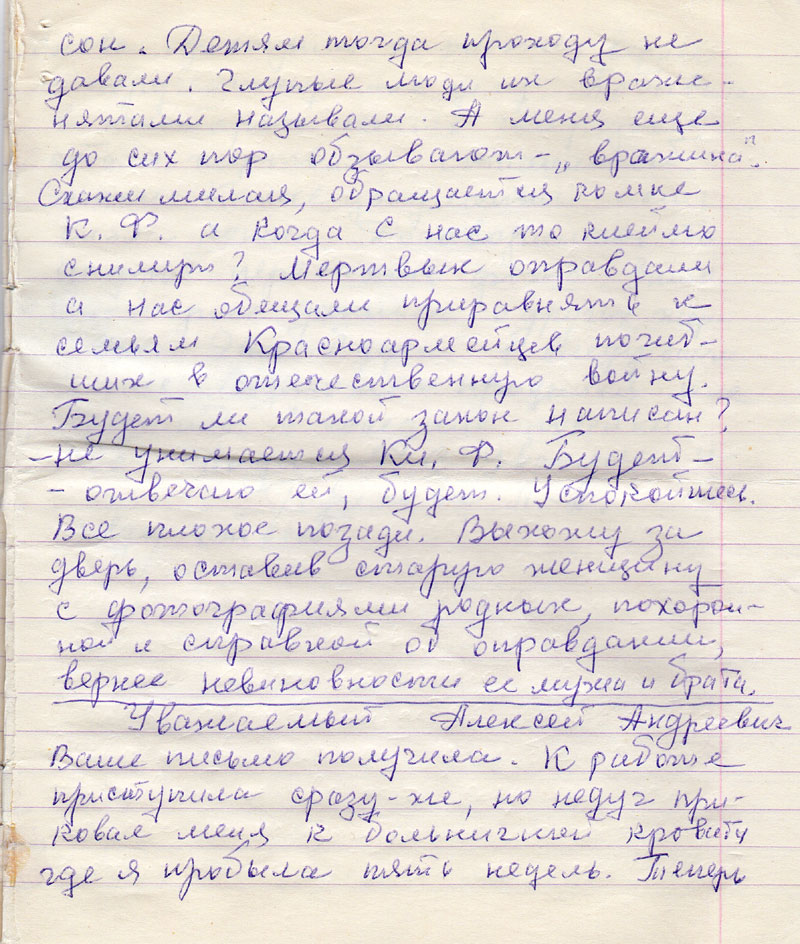 сон. Детям тогда проходу не
давали. Глупые люди их вражи-
нятами называли. А меня еще
до сих пор обзывают – „вражина".
Скажи милая, обращается ко мне
К. Ф. а когда с нас то клеймо
снимут? Мертвых оправдали
а нас обещали приравнять к
семьям Красноармейцев погиб-
ших в отечественную войну.
Будет ли такой закон написан?
– не унимается Кл. Ф. Будет –
– отвечаю ей, будет. Успокойтесь.
Все плохое позади. Выхожу за
дверь, оставив старую женщину
с фотографиями родных, похорон-
ной и справкой об оправдании,
вернее невиновности ее мужа и брата.
Уважаемый Алексей Андреевич
Ваше письмо получила. К работе
приступила сразу-же, но недуг при-
ковал меня к больничной кровати
где я пробыла пять недель. Теперь